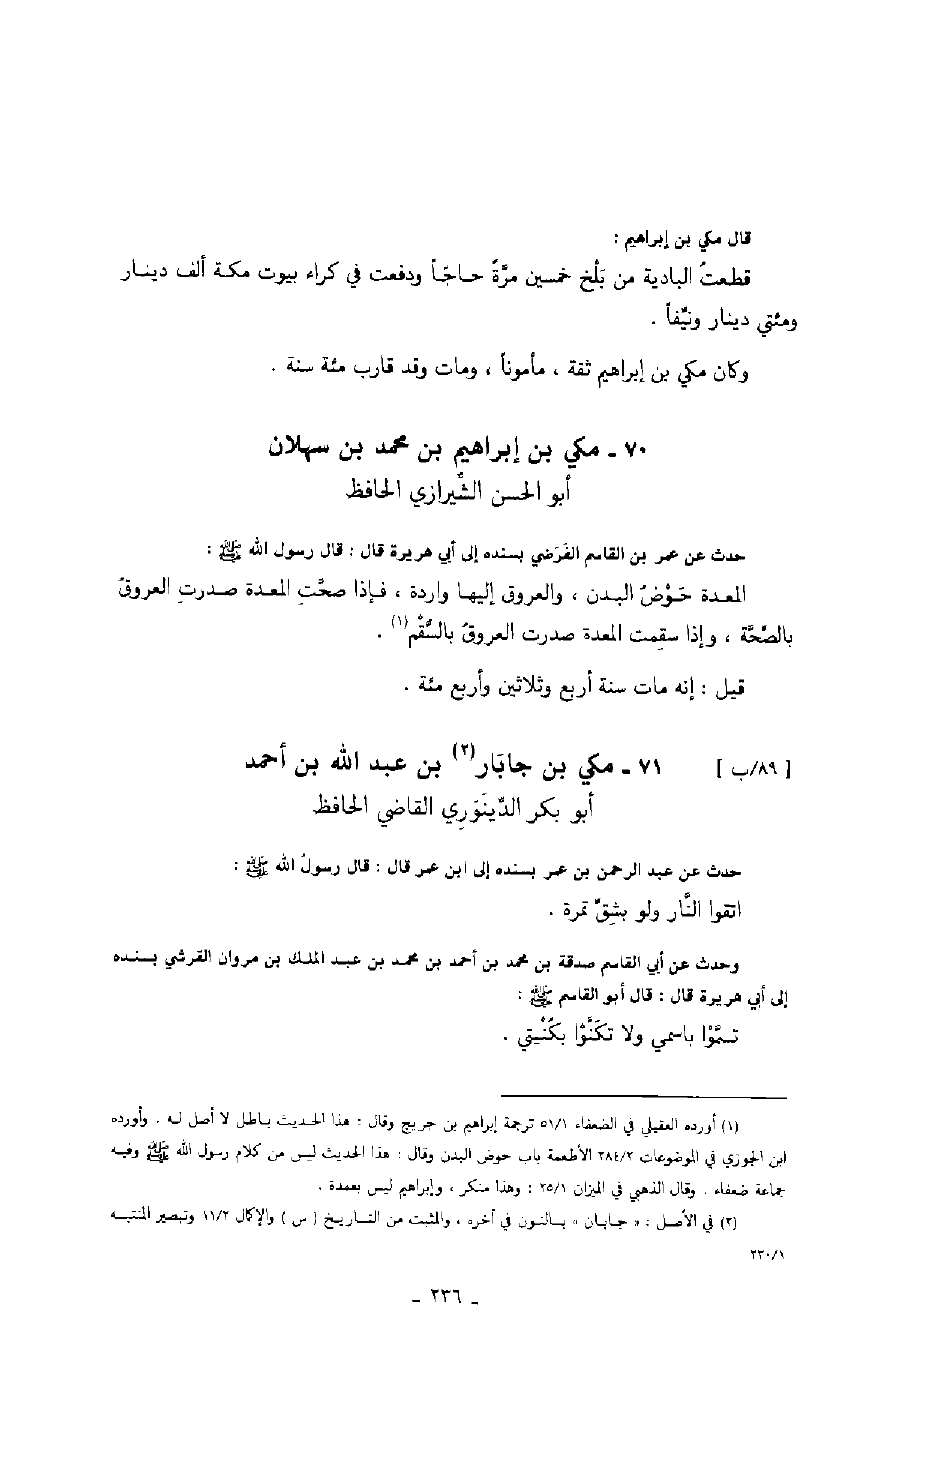 قال مكي بن إبراهيم :
قطعتُ البادية من بَلْخ خمسين مرَّةً حاجّاً ودفعت في كراء بيوت مكة ألف دينار
ومئتي دينار ونيِّفاً .
وكان مكي بن إبراهيم ثقة ، مأموناً ، ومات وقد قارب مئة سنة .
٧٠ - مكي بن إبراهيم بن محمد بن سهلان
أبو الحسن الشِّيرازي الحافظ
حدث عن عمر بن القاسم الفَرَضي بسنده إلى أبي هريرة قال : قال رسول الله ﷺ :
المعدة حَوْضُ البدن ، والعروق إليها واردة ، فإذا صحَّتِ المعدة صدرتِ العروقُ
بالصِّحَّة ، وإذا سقِمت المعدة صدرت العروقُ بالسُّقْم(١) .
قيل : إنه مات سنة أربع وثلاثين وأربع مئة .
[ ٨٩/ب ] ٧١ - مكي بن جابَار(٢) بن عبد الله بن أحمد
أبو بكر الدِّينَوَرِي القاضي الحافظ
حدث عن عبد الرحمن بن عمر بسنده إلى ابن عمر قال : قال رسولُ الله ﷺ :
اتقوا النَّار ولو بشِقِّ تمرة .
وحدث عن أبي القاسم صدقة بن محمد بن أحمد بن محمد بن عبد الملك بن مروان القرشي بسنده
إلى أبي هريرة قال : قال أبو القاسم ﷺ :
تسمَّوْا باسمي ولا تكَنَّوْا بكُنْيتي .
(١) أورده العقيلي في الضعفاء ٥١/١ ترجمة إبراهيم بن جريج وقال : هذا الحديث باطل لا أصل له . وأورده
ابن الجوزي في الموضوعات ٢٨٤/٢ الأطعمة باب حوض البدن وقال : هذا الحديث ليس من كلام رسول الله ﷺ وفيه
جماعة ضعفاء . وقال الذهبي في الميزان ٢٥/١ : وهذا منكر ، وإبراهيم ليس بعمدة .
(٢) في الأصل : « جابان » بالنون في آخره ، والمثبت من التاريخ ( س ) والإكمال ١١/٢ وتبصير المنتبه
٢٣٠/١
- ٢٣٦ -